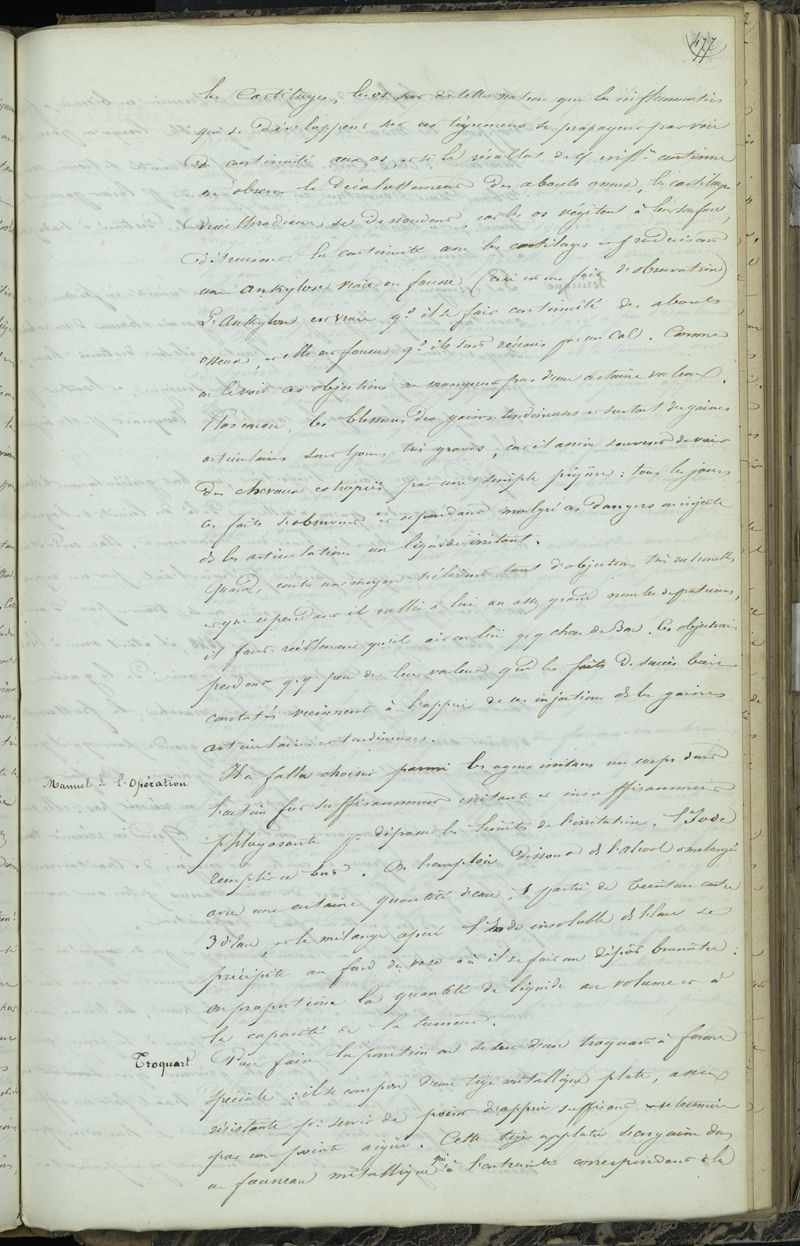 477
les Cartilages, les os sur de telle nature que les inflammations
qui se développent sur ces tégumens se propagent par voie
de continuité aux os, et si le résultat de cet inffon continue
on observe le décollement des abouts osseux, les cartilages
se dessoudent, car les os végètent à leur surface,
détruisent la continuité avec les cartilages et produisent
une Ankylose vraie ou fausse (ceci est un fait d'observation)
L'Ankylose est vraie qd il se fait continuité des abouts
osseux, et elle est fausse qd ils sont réunis par un cal. Comme
on le voit ces objections ne manquent pas d'une certaine valeur.
Pas encore, les blessures des gaines tendineuses et surtout des gaines
articulaires sont tjours très graves, car il arrive souvent de voir
des chevaux estropiés par une simple piqûre : tous les jours
ces faits s'observent et cependant malgré ces dangers on injecte
ds les articulations un liquide irritant.
Quand, contre un moyen s'élèvent tant d'objections très rationnelles
et que cependant il rallie à lui un assez grand nombre de partisans,
il faut réellement qu'il ait en lui q.q. chose de Bon. Ces objections
perdent q.q. peu de leur valeur quand les faits de succès bien
constatés viennent à l'appui de ces injections ds les gaines
articulaires et tendineuses.
Manuel de l'Opération
Il a fallu choisir parmi les agens irritans un corps dont
l'action fut suffisamment irritante et insuffisamment
phlogosante pr dépasser les limites de l'irritation. L'Iode
remplit ce but. On l'emploie dissous ds l'alcool et mélangé
avec une certaine quantité d'eau, 1 partie de teinture contre
3 d'eau, et le mélange opéré l'Iode insoluble ds l'eau se
précipite au fond du vase où il se fait un dépôt brunâtre :
on proportionne la quantité de liquide au volume et à
la capacité de la tumeur.
Troquart
Pour faire la ponction on se sert d'un troquart à forme
spéciale : il se compose d'une tige métallique plate, assez
résistante pr servir de point d'appui suffisant et terminée
par une pointe aigüe. Cette tige applatie s'engaine dans
un fourreau métallique qui à l'extrémité correspondant à la